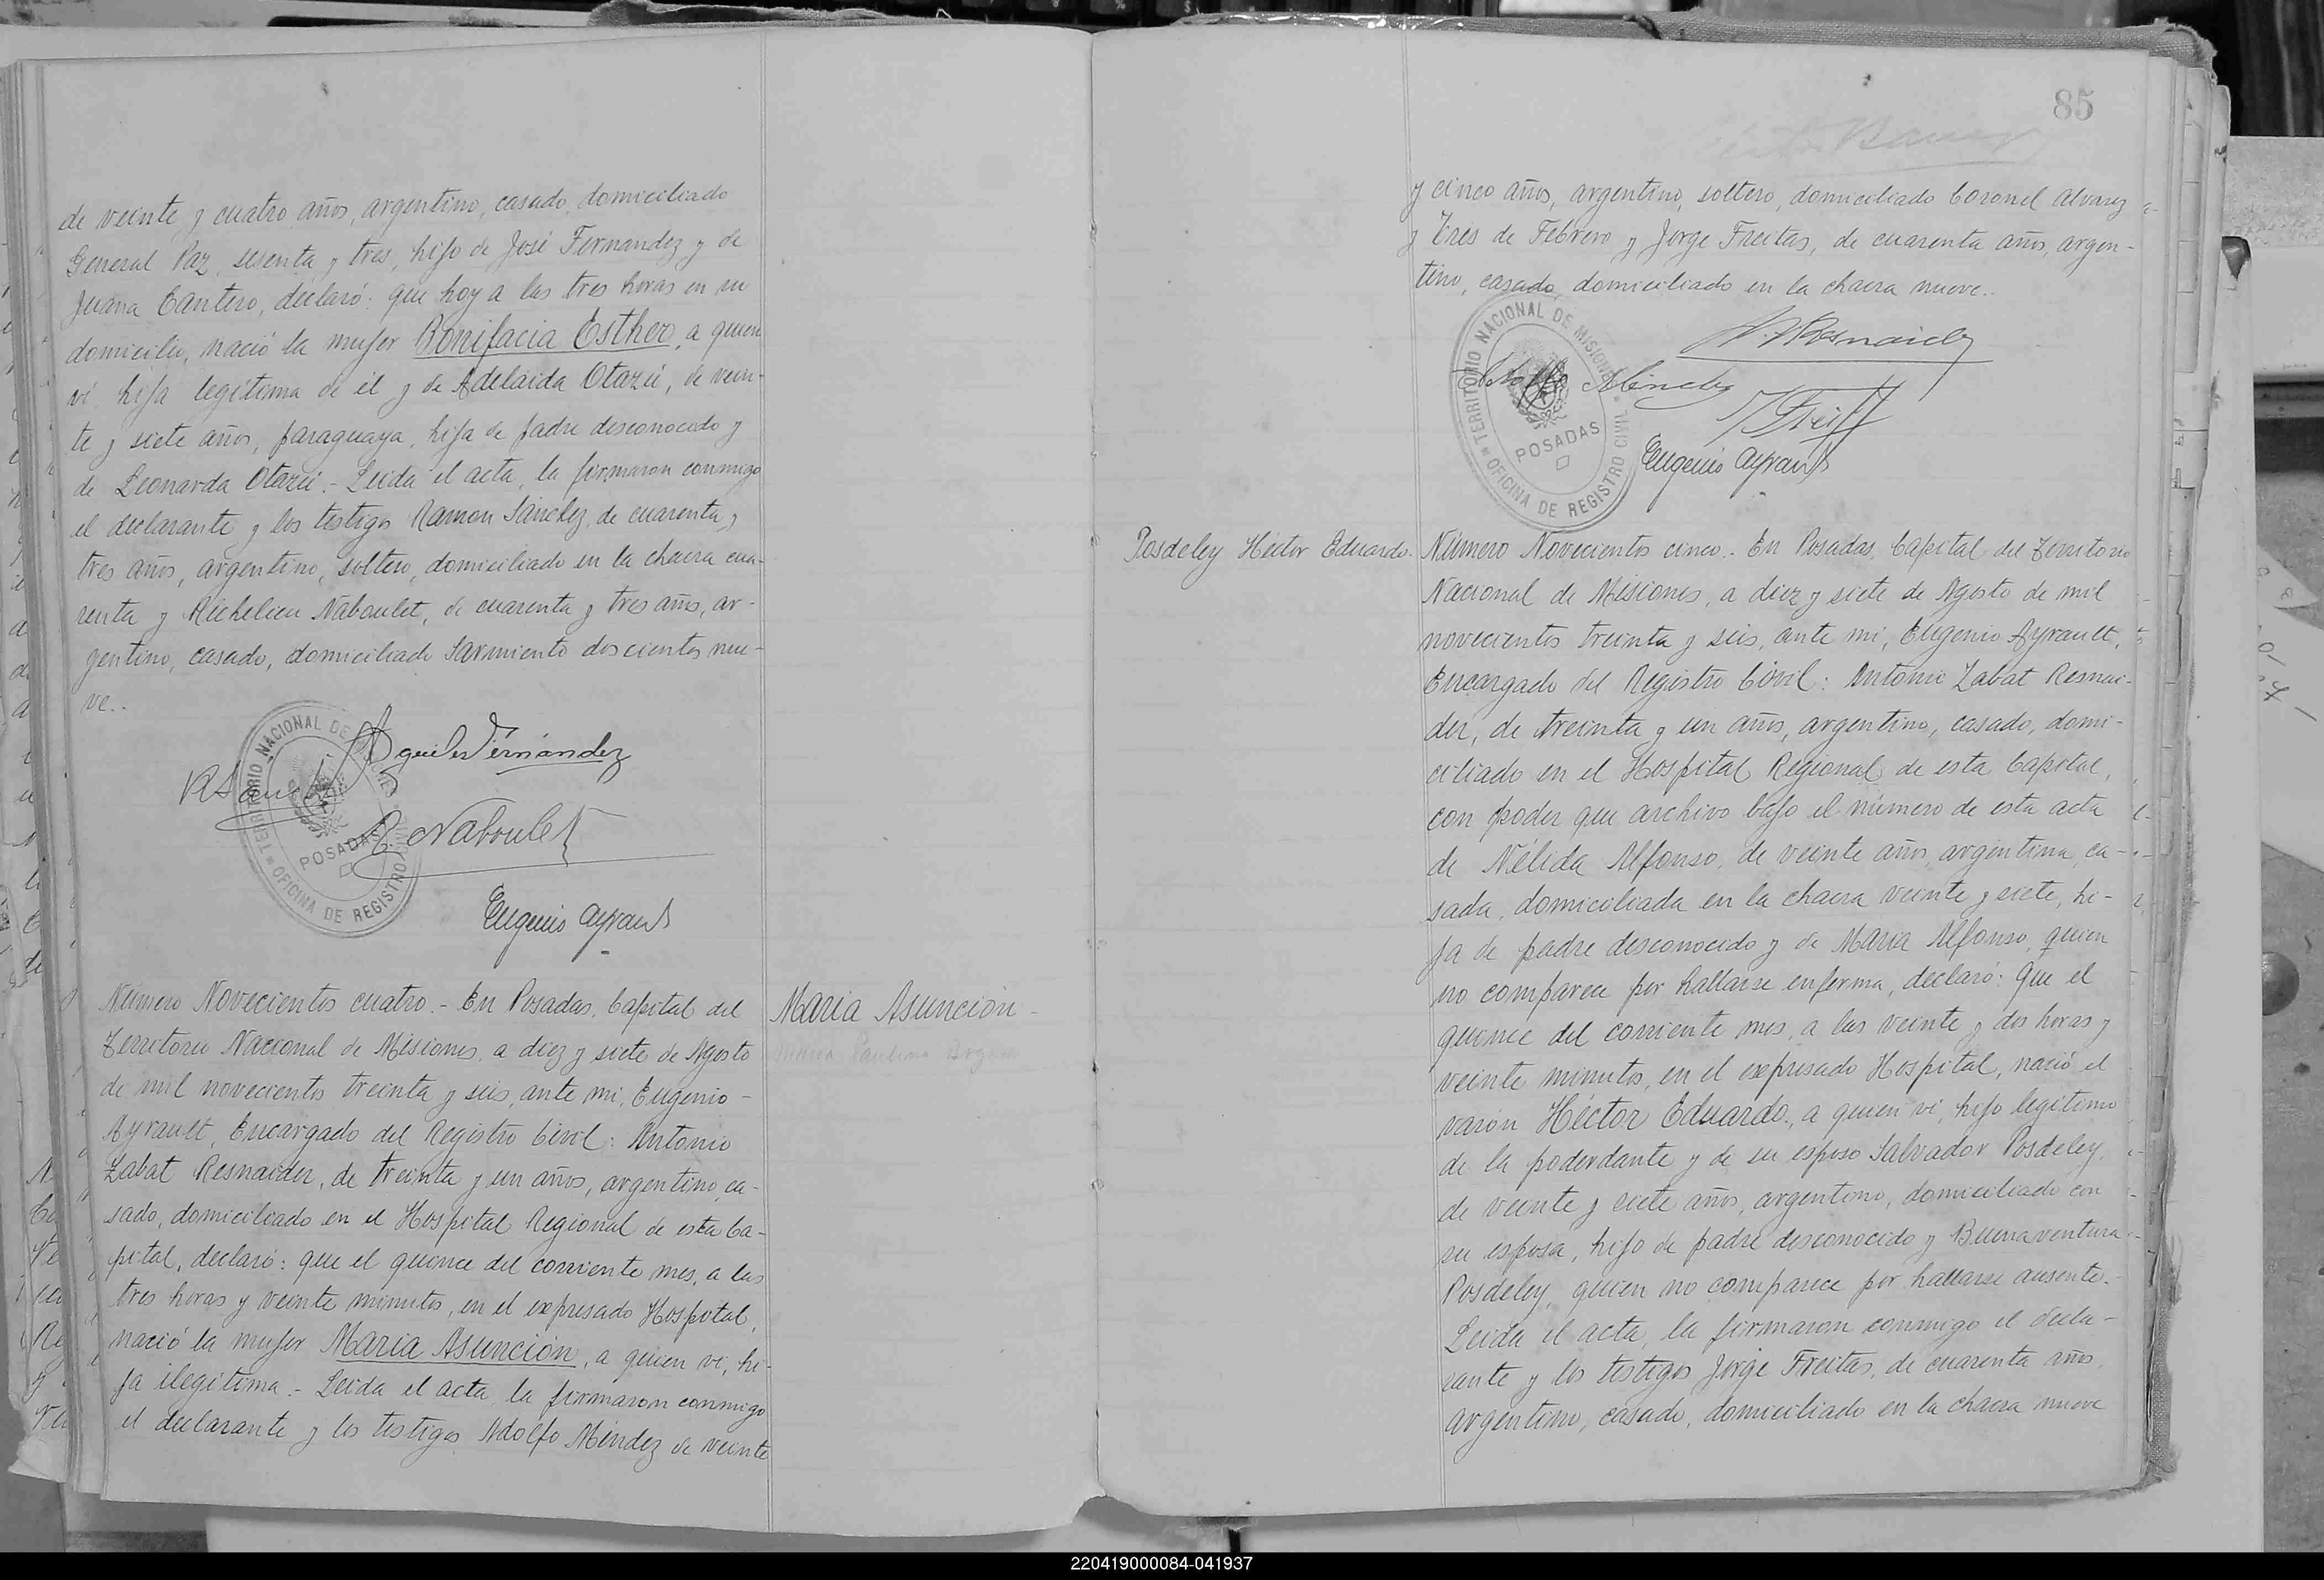 de veinte y cuatro años, argentino, casado, domiciliado
General Paz, sesenta y tres, hijo de José Fernandez y de
Juana Cantero, declaró: que hoy a las tres horas en su
domicilio, nació la mujer Bonifacia Esther, a quien
vi, hija legítima de él y de Adelaida Otazú, de vein-
te y siete años, paraguaya, hija de padre desconocido y
de Leonarda Otazú.- Leida el acta, la firmaron conmigo
el declarante y los testigos Ramon Sánchez, de cuarenta y
tres años, argentino, soltero, domiciliado en la chacra cua-
renta y Richelieu Naboulet, de cuarenta y tres años, ar-
gentino, casado, domiciliado Sarmiento doscientos nue-
ve..
Aquiles Fernández
R Sanchez
R. Naboulet
Eugenio Ayrault
TERRITORIO NACIONAL DE
POSADAS
OFICINA DE REGISTRO CIVIL
Número Novecientos cuatro.- En Posadas, Capital del
Territorio Nacional de Misiones, a diez y siete de Agosto
de mil novecientos treinta y seis, ante mi, Eugenio
Ayrault, Encargado del Registro Civil: Antonio
Zabat Resnaider, de treinta y un años, argentino, ca-
sado, domiciliado en el Hospital Regional de esta Ca-
pital, declaró: que el quince del corriente mes, a las
tres horas y veinte minutos, en el expresado Hospital,
nació la mujer Maria Asunción, a quien vi, hi-
ja ilegítima.- Leida el acta, la firmaron conmigo
el declarante y los testigos Adolfo Méndez de veinte
Maria Asunción
85
y cinco años, argentino, soltero, domiciliado Coronel Alvarez
y Tres de Febrero y Jorge Freitas, de cuarenta años, argen-
tino, casado, domiciliado en la chacra nueve..
A. Z Resnaider
Adolfo Méndez
J Freitas
Eugenio Ayrault
TERRITORIO NACIONAL DE MISIONES
POSADAS
OFICINA DE REGISTRO CIVIL
Posdeley Héctor Eduardo.
Número Novecientos cinco.- En Posadas, Capital del Territorio
Nacional de Misiones, a diez y siete de Agosto de mil
novecientos treinta y seis, ante mi, Eugenio Ayrault,
Encargado del Registro Civil: Antonio Zabat Resnai-
der, de treinta y un años, argentino, casado, domi-
ciliado en el Hospital Regional de esta Capital,
con poder que archivo bajo el número de esta acta
de Nélida Alfonso, de veinte años, argentina, ca-
sada, domiciliada en la chacra veinte y siete, hi-
ja de padre desconocido y de Maria Alfonso, quien
no comparece por hallarse enferma, declaró: Que el
quince del corriente mes, a las veinte y dos horas y
veinte minutos, en el expresado Hospital, nació el
varón Héctor Eduardo, a quien vi, hijo legítimo
de la poderdante y de su esposo Salvador Posdeley,
de veinte y siete años, argentino, domiciliado con
su esposa, hijo de padre desconocido y Buenaventura
Posdeley, quien no comparece por hallarse ausente.-
Leida el acta, la firmaron conmigo el decla-
rante y los testigos Jorge Freitas, de cuarenta años,
argentino, casado, domiciliado en la chacra nueve
220419000084-041937